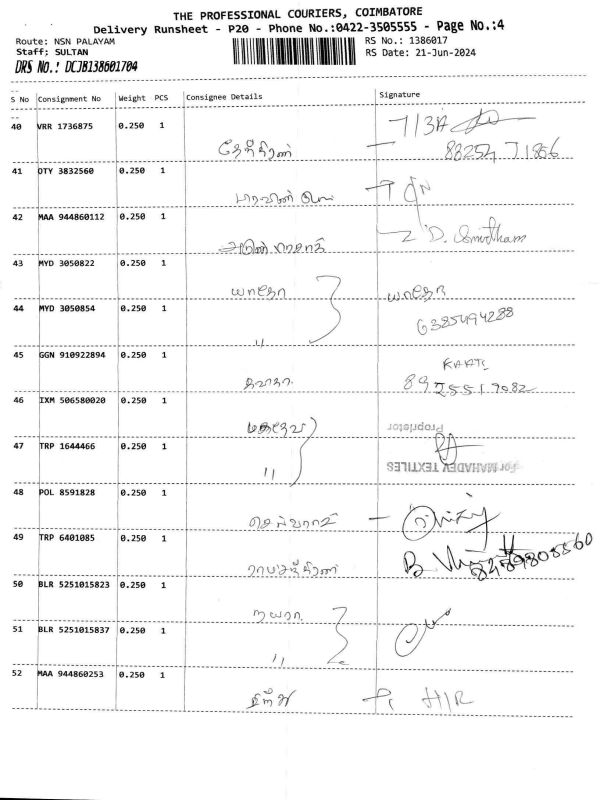 THE PROFESSIONAL COURIERS, COIMBATORE
Delivery Runsheet - P20 - Phone No.:0422-3505555 - Page No.:4
Route: NSN PALAYAM
RS No.: 1386017
Staff: SULTAN
RS Date: 21-Jun-2024
DRS No.: DCJB138601704
S No Consignment No Weight PCS Consignee Details Signature
40 VRR 1736875 0.250 1
88254 71866
41 OTY 3832560 0.250 1
42 MAA 944860112 0.250 1
D.
43 MYD 3050822 0.250 1
யசோதா யசோதா
44 MYD 3050854 0.250 1
6385494288
"
45 GGN 910922894 0.250 1
46 IXM 506580020 0.250 1
மகாதேவ் Proprietor
47 TRP 1644466 0.250 1
" For MAHADEV TEXTILES
48 POL 8591828 0.250 1
செல்வராஜ்
49 TRP 6401085 0.250 1
ராமச்சந்திரன் B
50 BLR 5251015823 0.250 1
51 BLR 5251015837 0.250 1
"
52 MAA 944860253 0.250 1
H/R